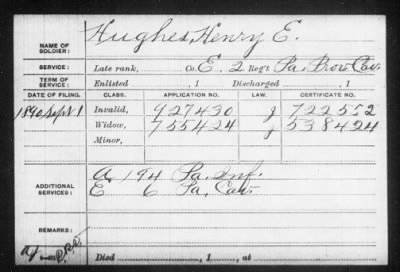 NAME OF SOLDIER: Hughes, Henry E.
SERVICE: Late rank, Co. E, 2 Reg't Pa. Prov. Cav.
TERM OF SERVICE: Enlisted , 1 Discharged , 1
DATE OF FILING. CLASS. APPLICATION NO. LAW. CERTIFICATE NO.
1890 Sept 1 Invalid, 927430 J 722552
Widow, 755424 J 538424
Minor,
ADDITIONAL SERVICES: A 194 Pa. Inf.
E 6 Pa. Cav.
Died , 1 , at